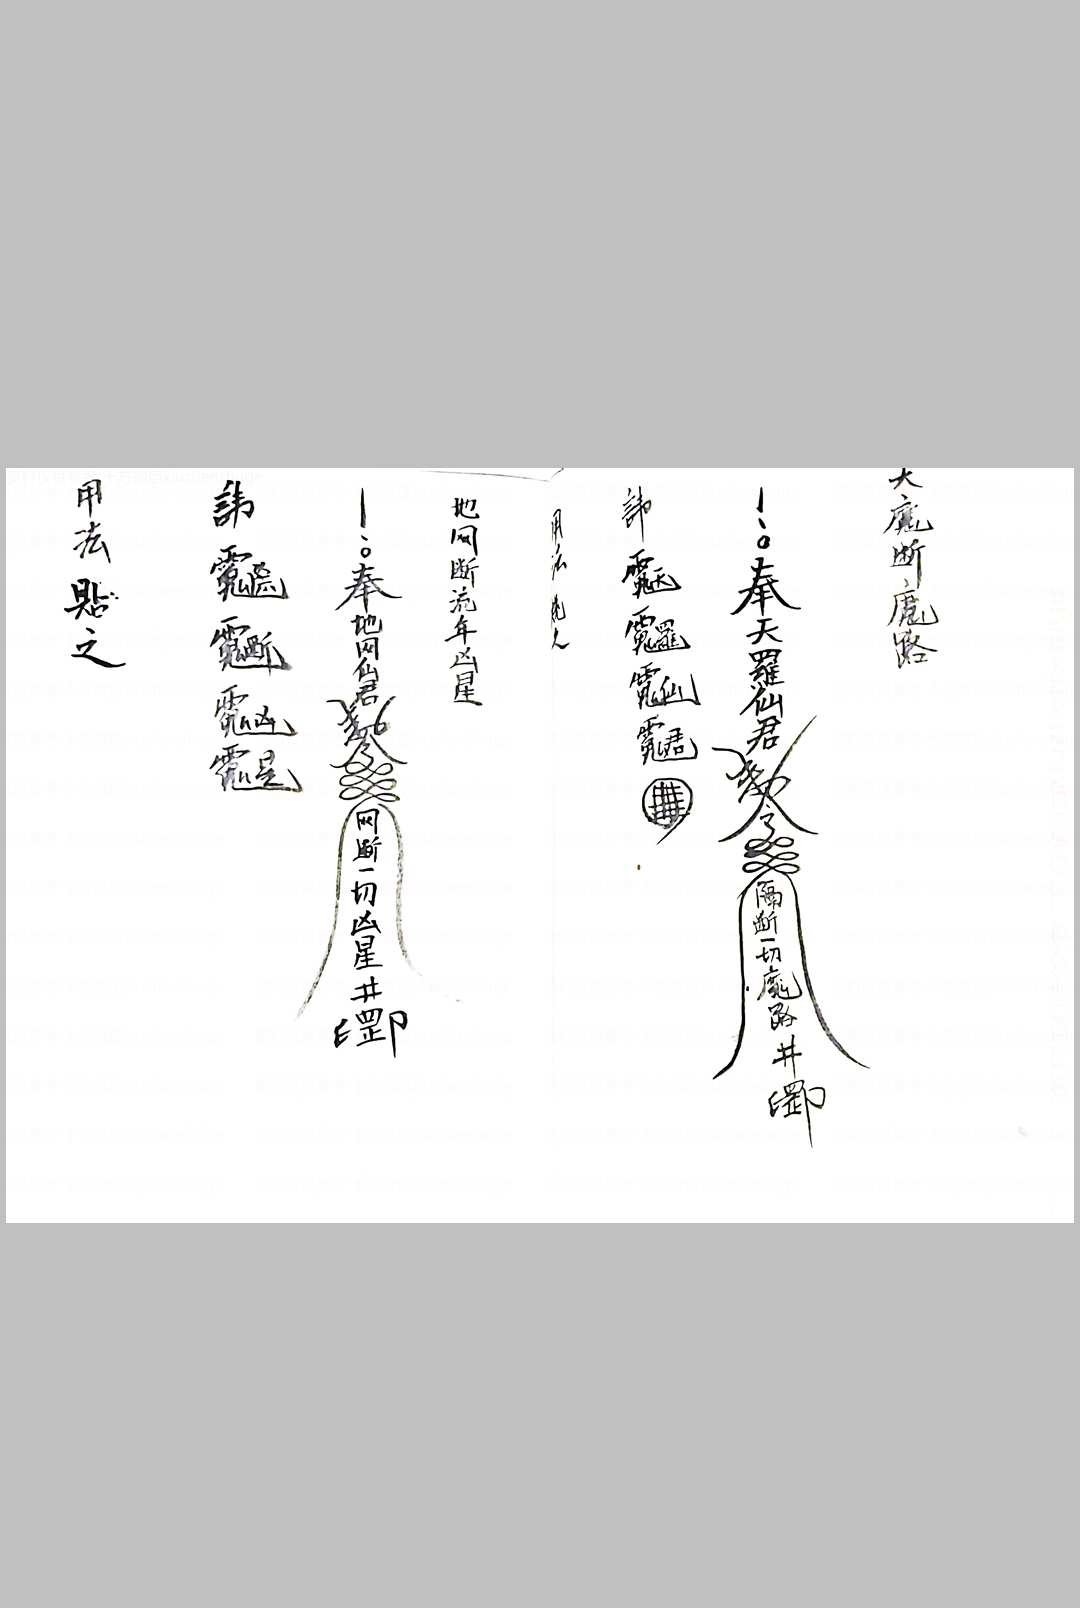 天魔断魔路
奉天羅仙君勅令
隔断一切魔路井罡印
諱
用法
地网断流年凶星
奉地网仙君勅令
网断一切凶星井罡印
諱
用法貼之